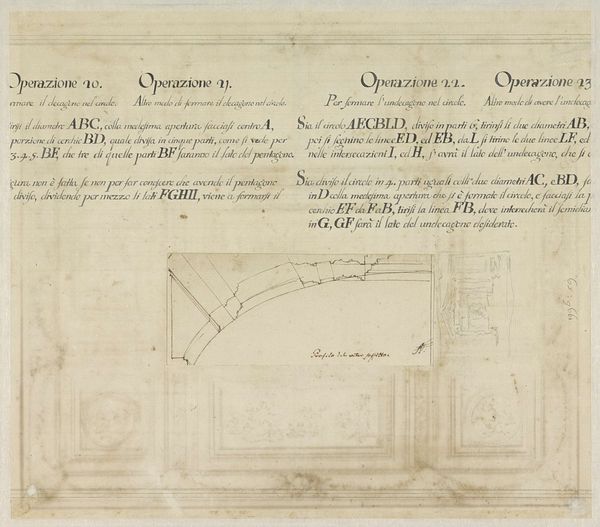 Operazione 20. Operazione 21. Operazione 22. Operazione 23
rmare il decagono nel circolo. Altro modo di formare il decagono nel circolo. Per formare l'undecagono nel circolo. Altro modo di avere l'undecago
il diametro ABC, colla medesima apertura facciasi centro A,
porzione di cerchio BD, quale divisa in cinque parti, come si vede per
3. 4. 5. BF, che tre di quelle parti BF saranno il lato del pentagono.
non è fatta, se non per far conoscere che avendo il pentagono
diviso, dividendo per mezzo li lati FGHII, viene a formarsi il
Sia il circolo AECBLD, diviso in parti 6, tirinsi li due diametri AB,
poi si seghino le linee ED, ed EB, da L si tirino le due linee LF, ed
nelle intersecazioni I, ed H, s'avrà il lato dell'undecagono, che si
Sia diviso il circolo in 4. parti uguali colli due diametri AC, e BD,
in D colla medesima apertura che si è formato il circolo, e facciasi la
cerchio EF da F a B, tirisi la linea FB, dove intersecherà il semidia
in G, GF sarà il lato del undecagono desiderato.